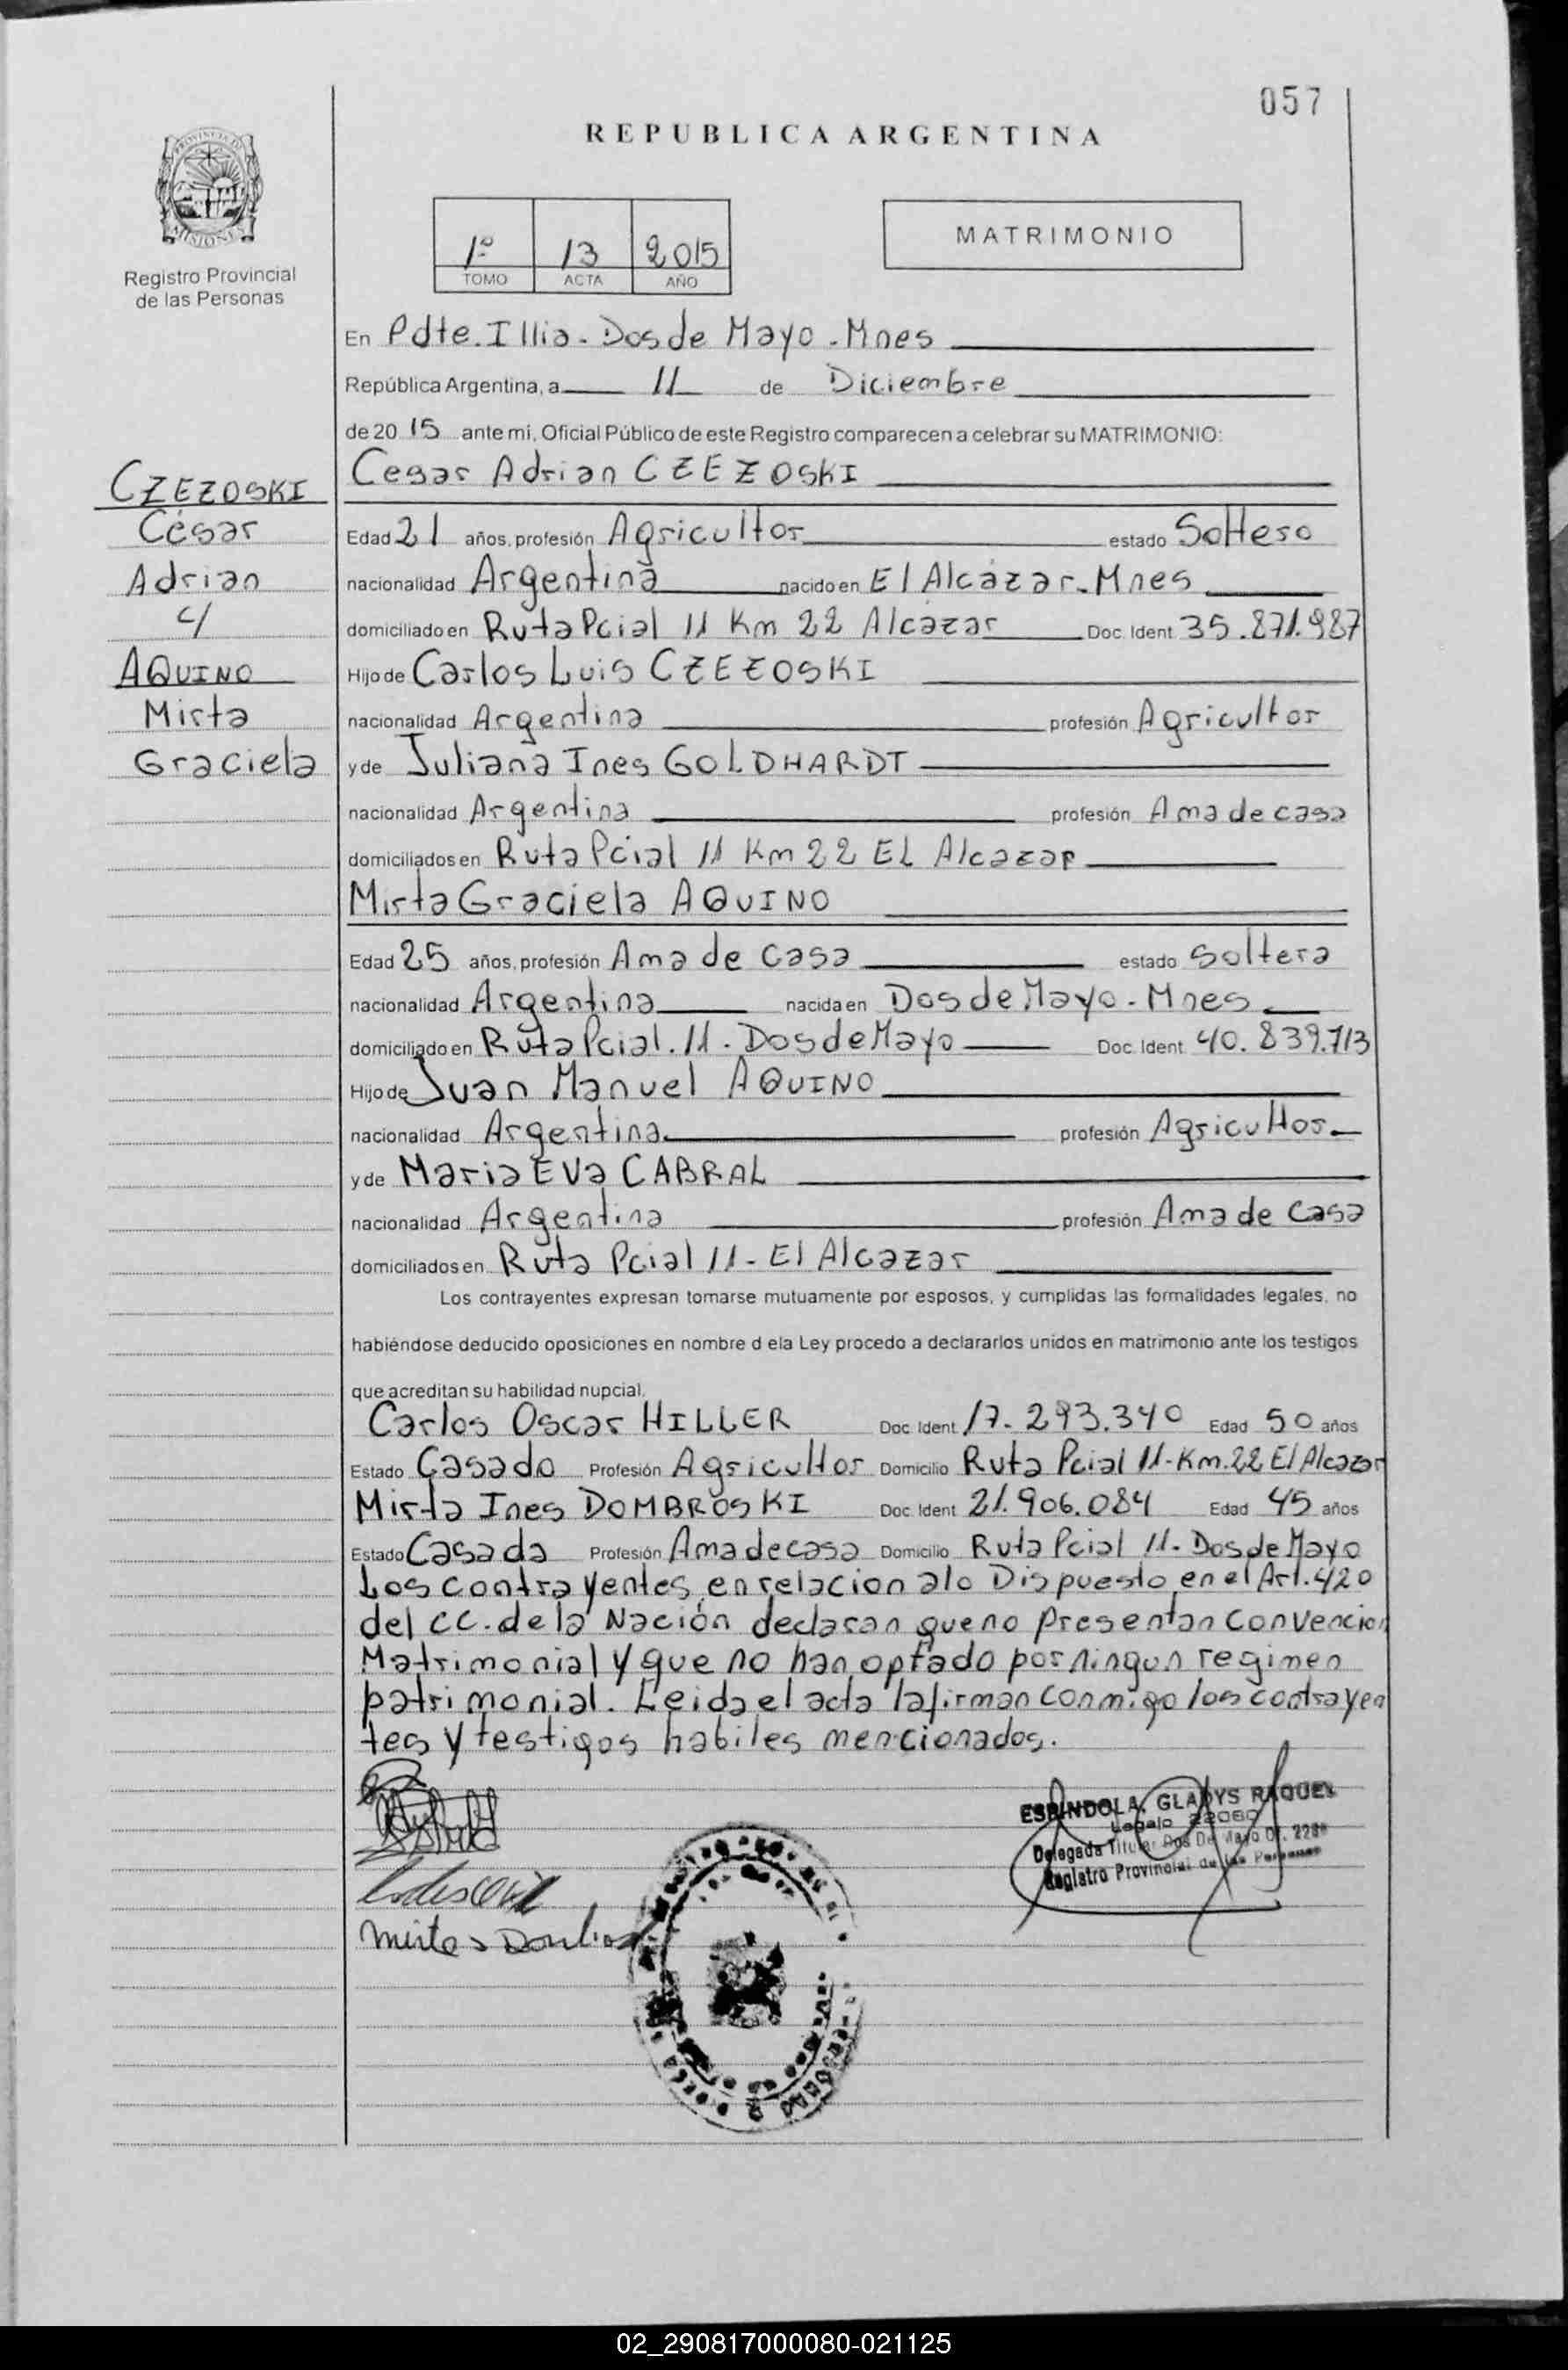 057
REPUBLICA ARGENTINA
PROVINCIA DE
MISIONES
Registro Provincial
de las Personas
1º 13 2015
TOMO ACTA AÑO
MATRIMONIO
En Pdte. Illia - Dos de Mayo - Mnes
República Argentina, a 11 de Diciembre
de 20 15 ante mi, Oficial Público de este Registro comparecen a celebrar su MATRIMONIO:
CZEZOSKI
César
Adrian
c/
AQUINO
Mirta
Graciela
Cesar Adrian CZEZOSKI
Edad 21 años, profesión Agricultor estado Soltero
nacionalidad Argentina nacido en El Alcázar - Mnes
domiciliado en Ruta Pcial 11 Km 22 Alcazar Doc. Ident. 35.871.987
Hijo de Carlos Luis CZEZOSKI
nacionalidad Argentina profesión Agricultor
y de Juliana Ines GOLDHARDT
nacionalidad Argentina profesión Ama de casa
domiciliados en Ruta Pcial 11 Km 22 EL Alcazar
Mirta Graciela AQUINO
Edad 25 años, profesión Ama de Casa estado Soltera
nacionalidad Argentina nacida en Dos de Mayo - Mnes
domiciliado en Ruta Pcial. 11 - Dos de Mayo Doc. Ident. 40.839.713
Hijo de Juan Manuel AQUINO
nacionalidad Argentina profesión Agricultor
y de Maria EVa CABRAL
nacionalidad Argentina profesión Ama de Casa
domiciliados en Ruta Pcial 11 - El Alcazar
Los contrayentes expresan tomarse mutuamente por esposos, y cumplidas las formalidades legales, no
habiéndose deducido oposiciones en nombre d ela Ley procedo a declararlos unidos en matrimonio ante los testigos
que acreditan su habilidad nupcial.
Carlos Oscar HILLER Doc. Ident. 17.293.340 Edad 50 años
Estado Casado Profesión Agricultor Domicilio Ruta Pcial 11 - Km. 22 El Alcazar
Mirta Ines DOMBROSKI Doc. Ident. 21.906.084 Edad 45 años
Estado Casada Profesión Ama de casa Domicilio Ruta Pcial 11 - Dos de Mayo
Los contrayentes, en relacion a lo Dispuesto en el Art. 420
del CC. de la Nación declaran que no presentan convencion
Matrimonial y que no han optado por ningun regimen
patrimonial. Leida el acta la firman conmigo los contrayen
tes y testigos habiles mencionados.
ESPINDOLA, GLADYS RAQUEL
Legajo 22060
Delegada Titular Dos De Mayo
Registro Provincial de las Personas
02_290817000080-021125